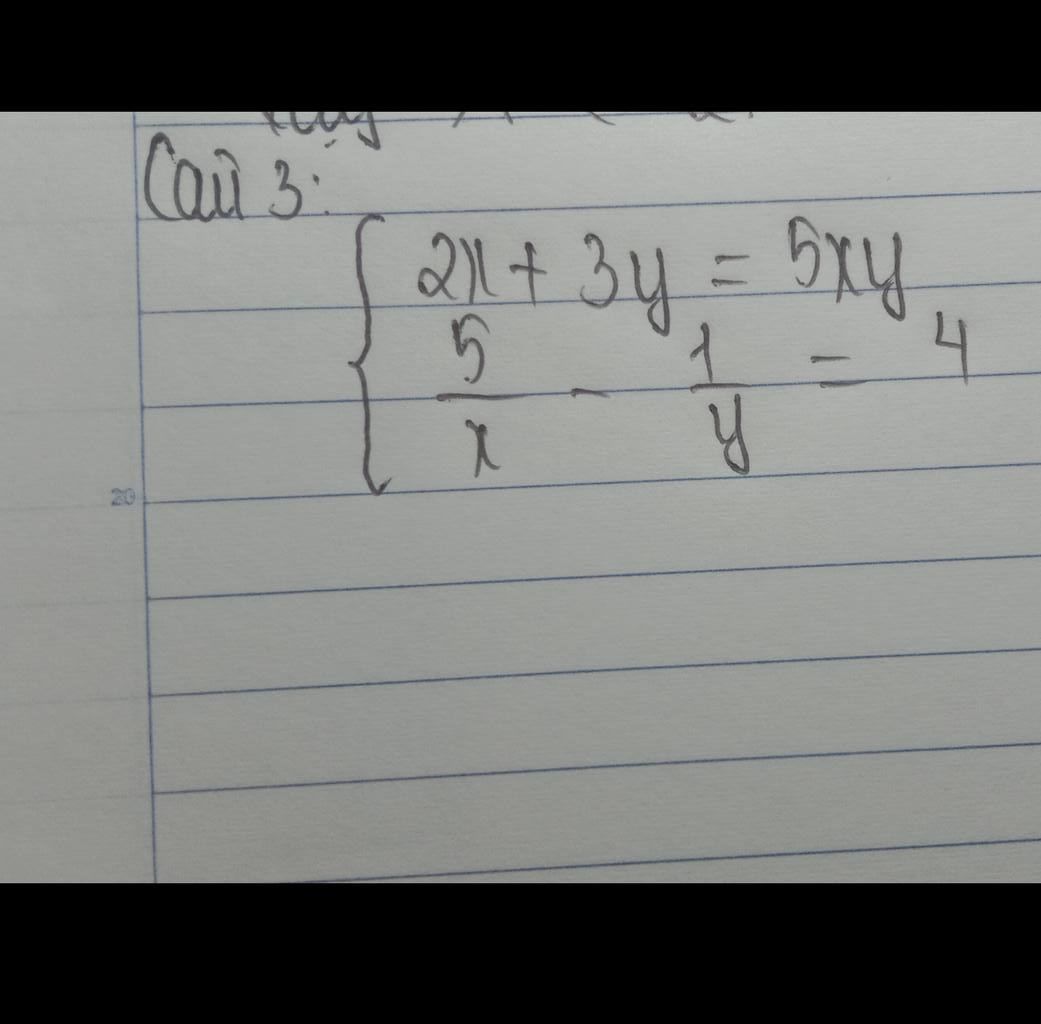 Câu 3:
2x + 3y = 5xy
5/x - 1/y = 4
20